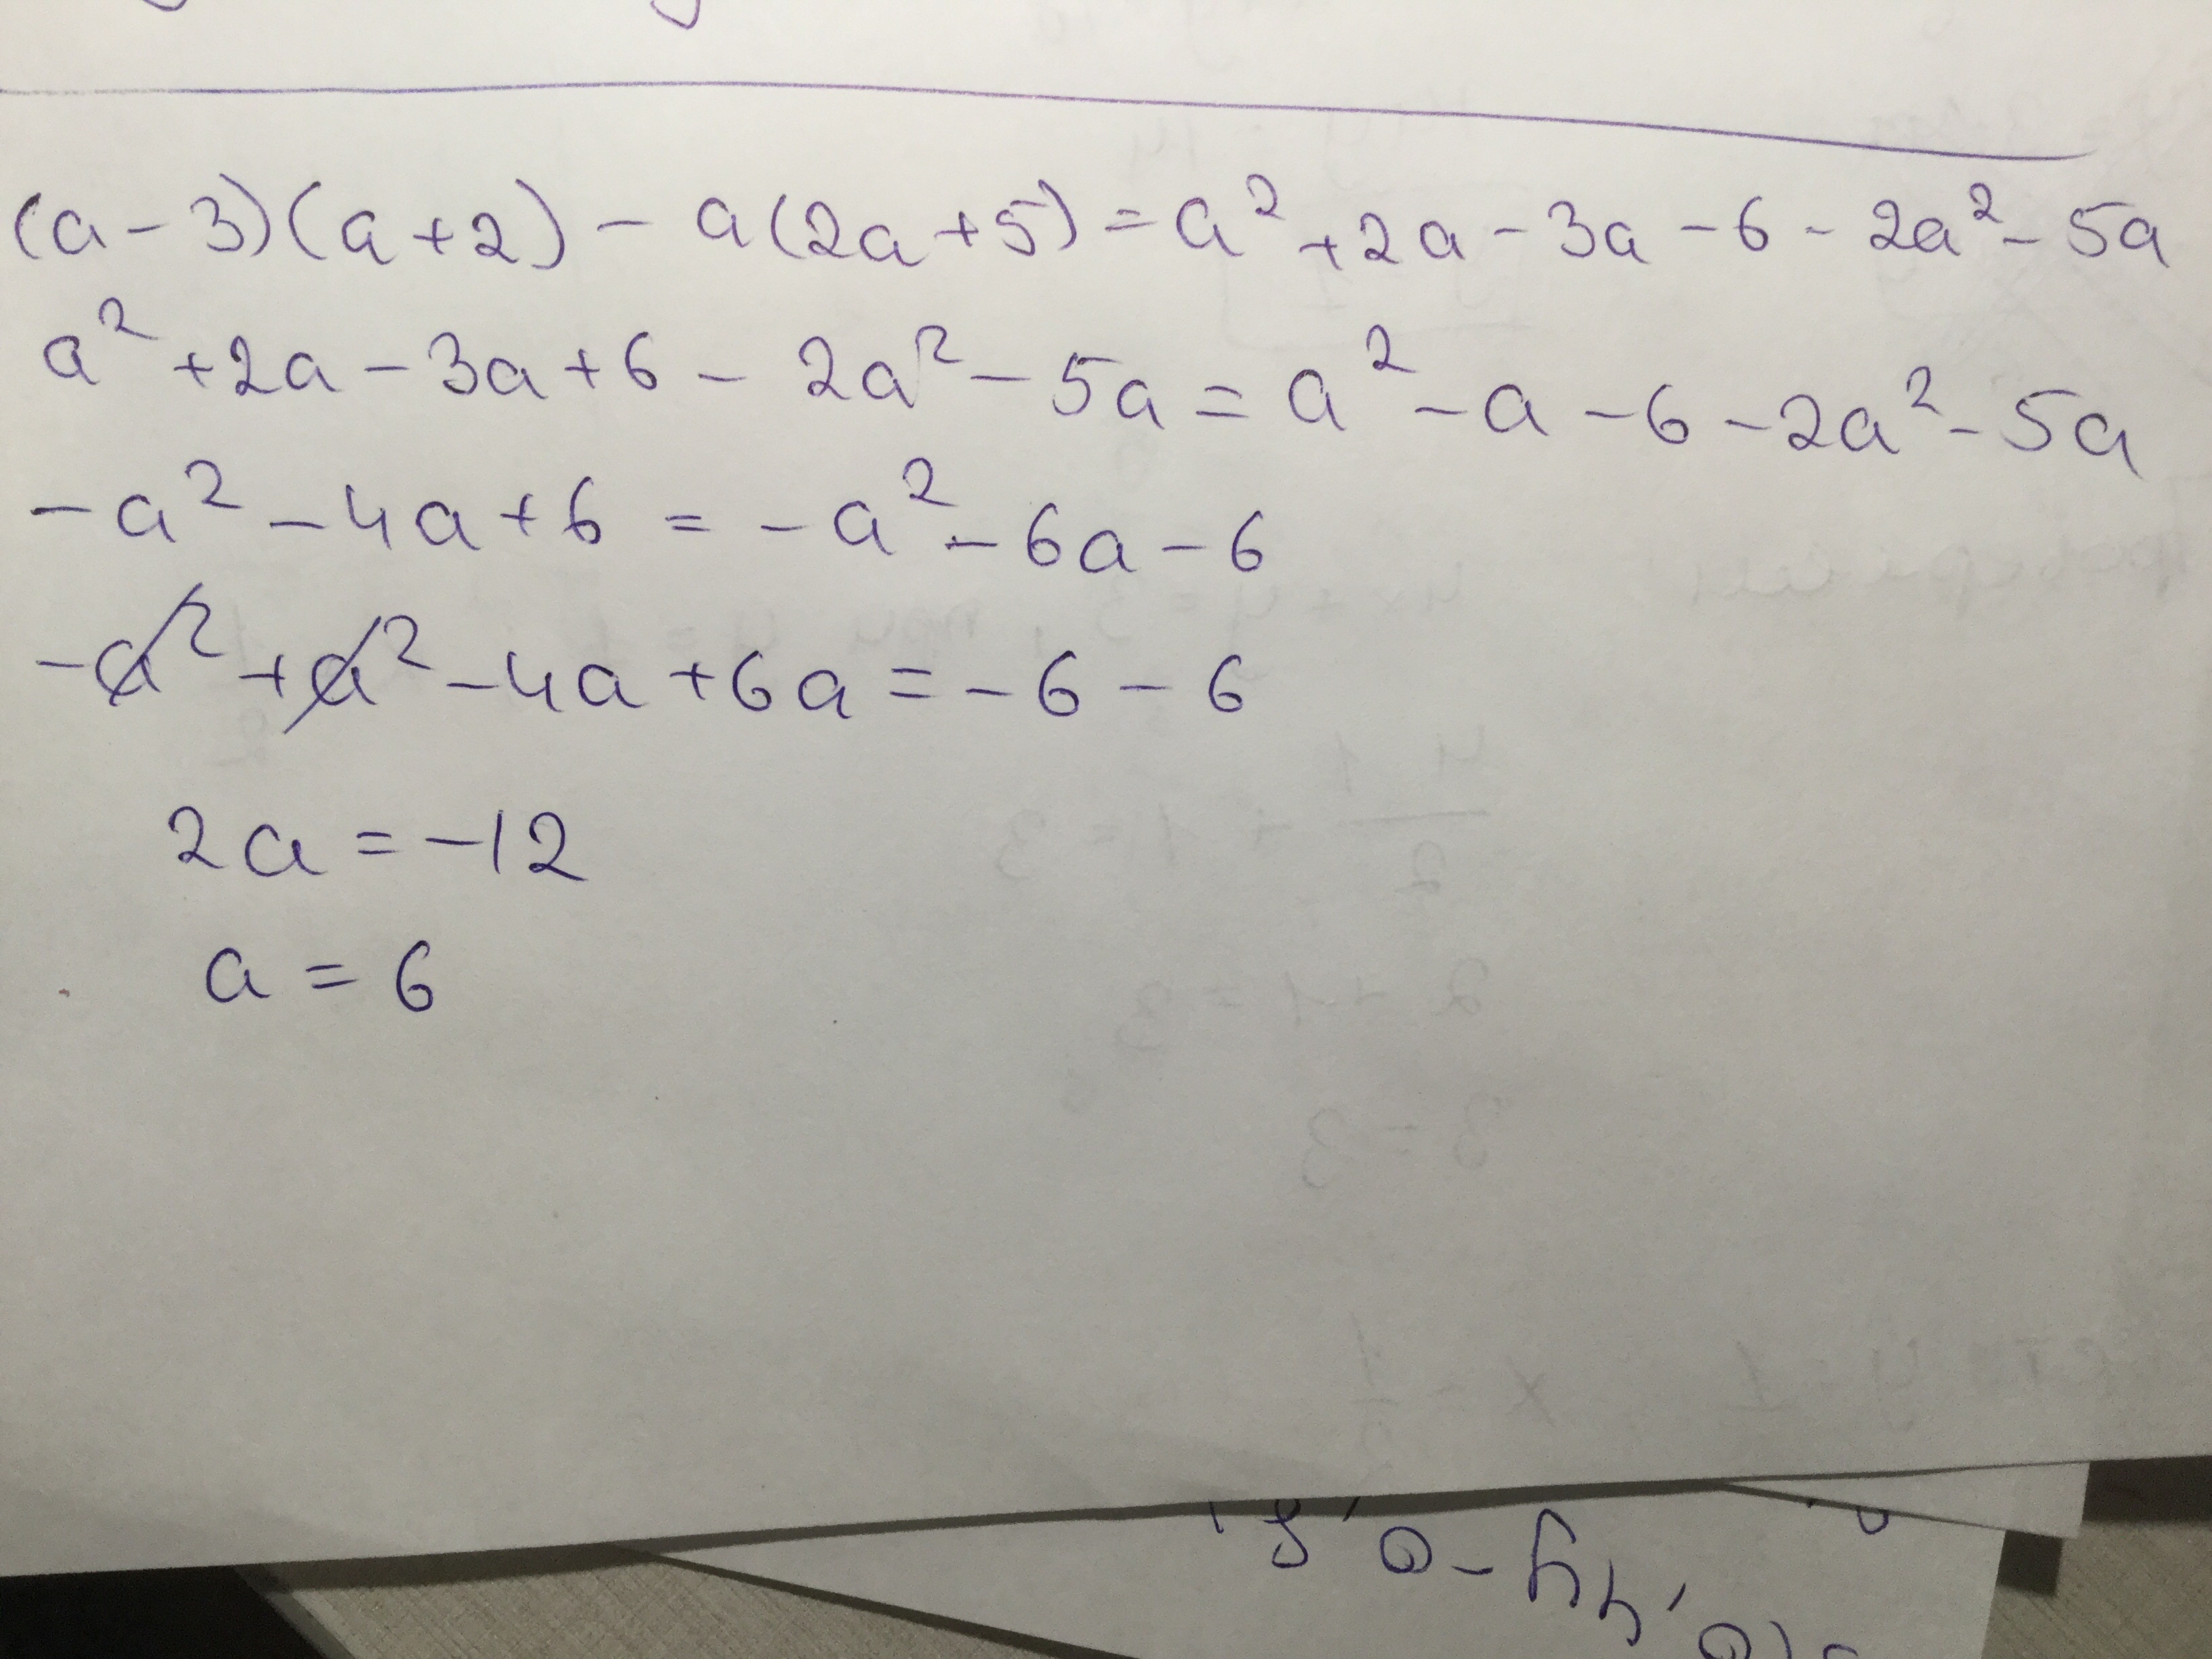 (a-3)(a+2) - a(2a+5) = a² + 2a - 3a - 6 - 2a² - 5a
a² + 2a - 3a + 6 - 2a² - 5a = a² - a - 6 - 2a² - 5a
-a² - 4a + 6 = -a² - 6a - 6
-a² + a² - 4a + 6a = -6 - 6
2a = -12
a = 6